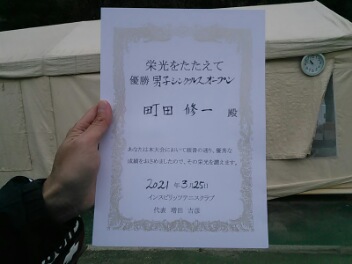 栄光をたたえて
優勝 男子シングルス オープン
町田 修一 殿
あなたは本大会において頭書の通り、優秀な
成績をおさめましたので、その栄光を讃えます。
2021 年 3 月 25 日
インスピリッツテニスクラブ
代表 増田 吉彦